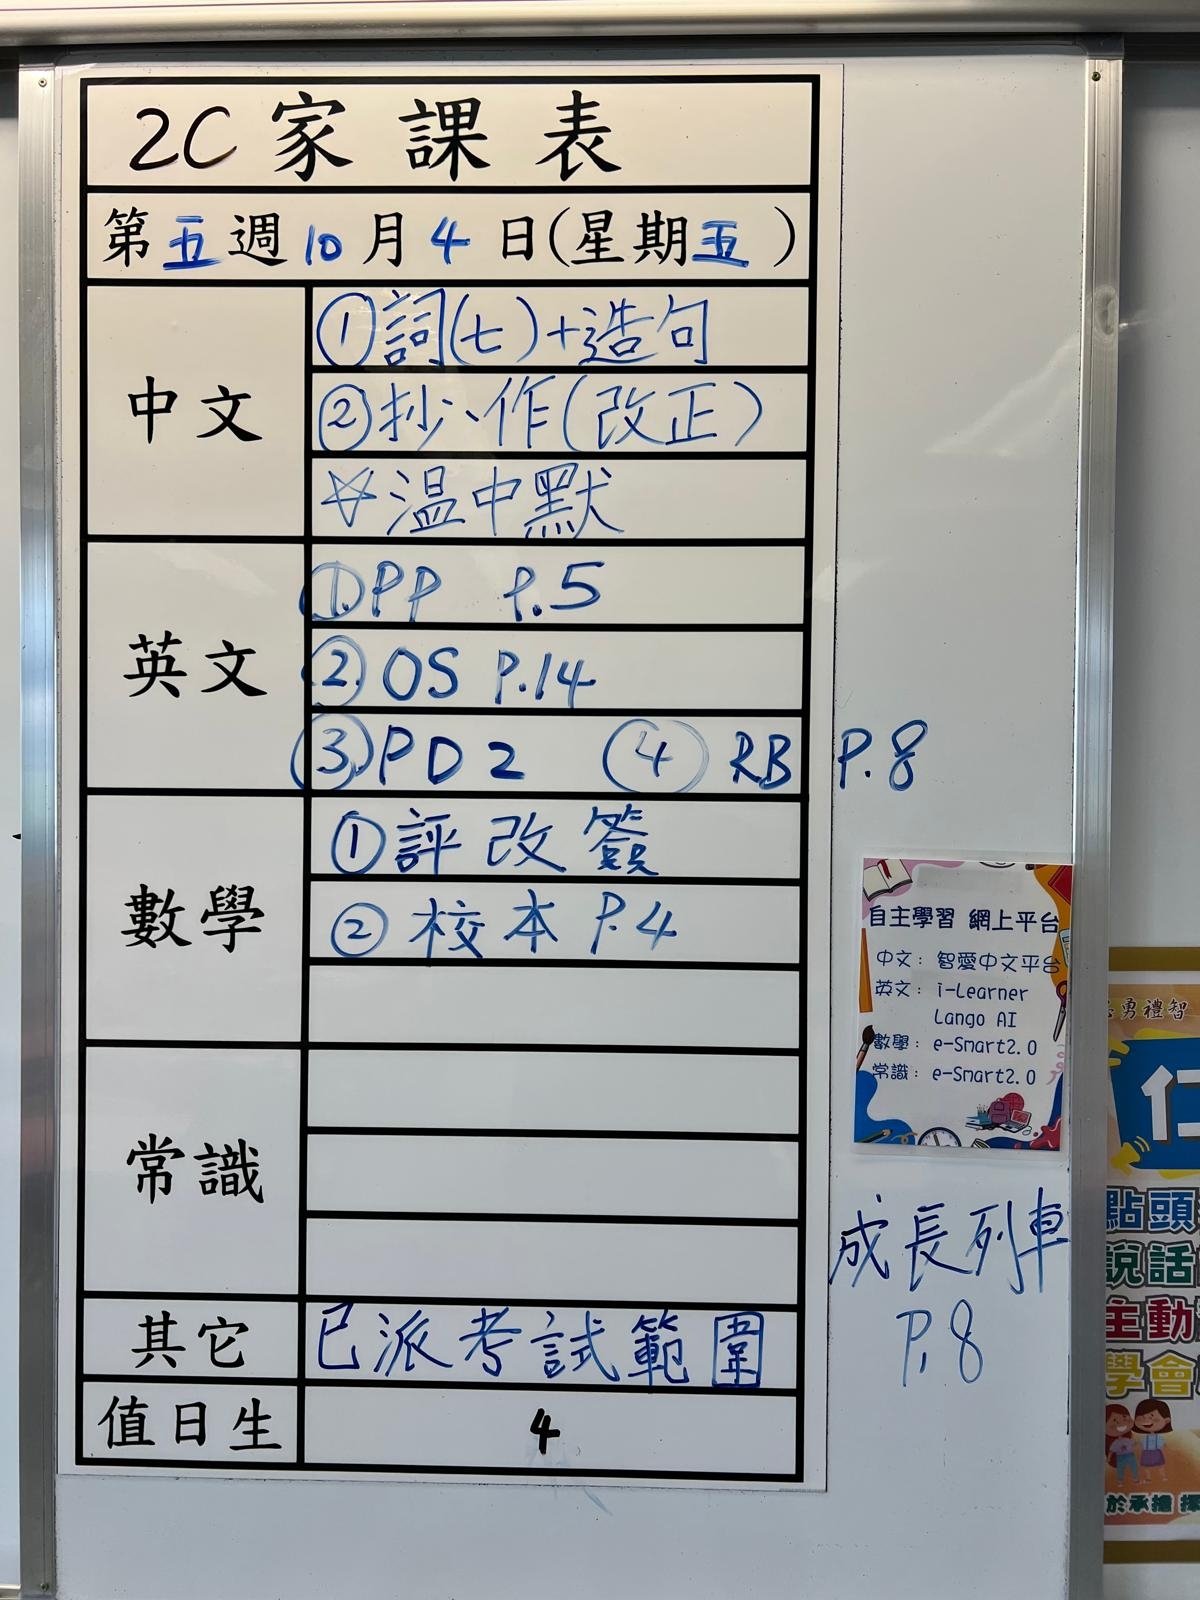 2C 家課表
第五週10月4日(星期五)
中文
①詞(七)+造句
②抄、作(改正)
☆溫中默
英文
①PP P.5
② OS P.14
③PD2 ④ RB P.8
數學
①評改簽
② 校本 P.4
常識
其它
已派考試範圍
值日生
4
自主學習 網上平台
中文：智愛中文平台
英文：i-Learner
Lango AI
數學：e-Smart2.0
常識：e-Smart2.0
成長列車
P.8
勇禮智
仁
點頭
說話
主動
學會
於承擔